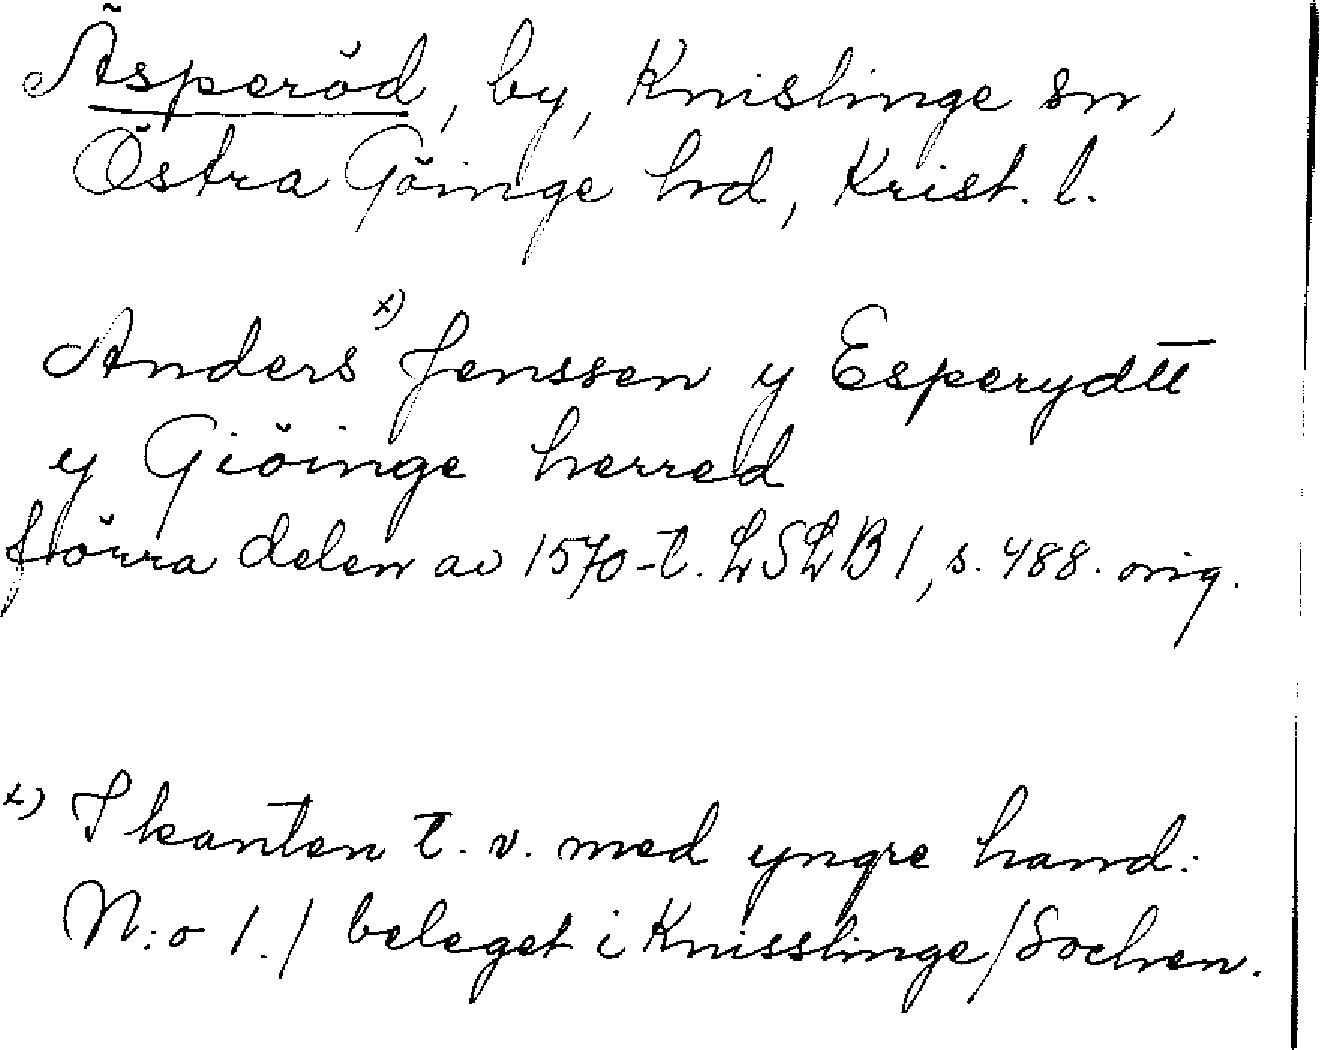 Äsperöd, by, Knislinge sn,
Östra Göinge hd, Krist. l.
Anders x) Jenssen y Esperydtt
y Giöinge herred
förra delen av 1570-t. LSLB 1, s. 488. orig.
x) I kanten t. v. med yngre hand:
N:o 1./ beleget i Knisslinge/Sochen.